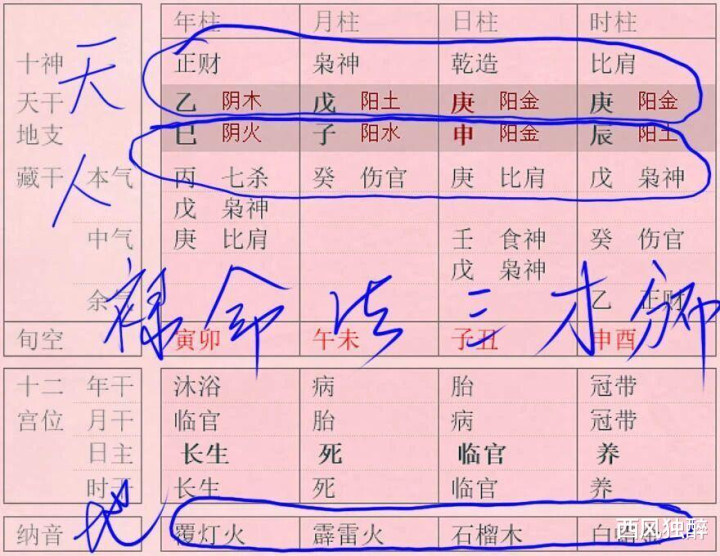 年柱 月柱 日柱 时柱
十神 正财 枭神 乾造 比肩
天
天干 乙 阴木 戊 阳土 庚 阳金 庚 阳金
地支 巳 阴火 子 阳水 申 阳金 辰 阳土
藏干 本气 丙 七杀 癸 伤官 庚 比肩 戊 枭神
人
戊 枭神
中气 庚 比肩 壬 食神 癸 伤官
戊 枭神
禄命法三才
余气 乙 正财
旬空 寅卯 午未 子丑 申酉
十二 年干 沐浴 病 胎 冠带
宫位 月干 临官 胎 病 冠带
日主 长生 死 临官 养
时干 长生 死 临官 养
地
纳音 覆灯火 霹雷火 石榴木
西风独醉